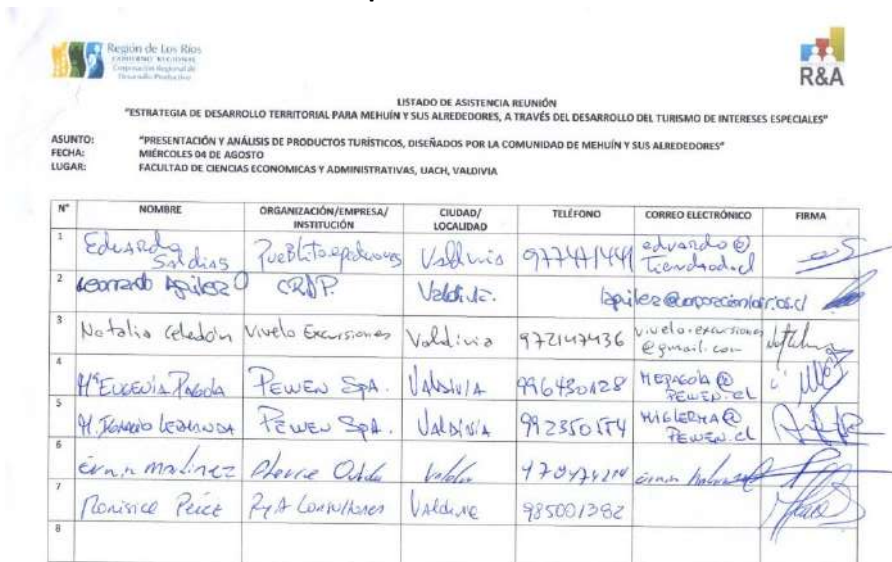 Región de Los Ríos
GOBIERNO REGIONAL
Corporación Regional de
Desarrollo Productivo
R&A
LISTADO DE ASISTENCIA REUNIÓN
"ESTRATEGIA DE DESARROLLO TERRITORIAL PARA MEHUÍN Y SUS ALREDEDORES, A TRAVÉS DEL DESARROLLO DEL TURISMO DE INTERESES ESPECIALES"
ASUNTO: "PRESENTACIÓN Y ANÁLISIS DE PRODUCTOS TURÍSTICOS, DISEÑADOS POR LA COMUNIDAD DE MEHUÍN Y SUS ALREDEDORES"
FECHA: MIÉRCOLES 04 DE AGOSTO
LUGAR: FACULTAD DE CIENCIAS ECONOMICAS Y ADMINISTRATIVAS, UACH, VALDIVIA
N° NOMBRE ORGANIZACIÓN/EMPRESA/ INSTITUCIÓN CIUDAD/ LOCALIDAD TELÉFONO CORREO ELECTRÓNICO FIRMA
1 Eduardo Saldias Valdivia 977471441 eduardo@
2 Leonardo Aguilera O CRDP. Valdivia.
3 Natalia Celedón Vivelo Excursiones Valdivia 972147436 vivelo.excursiones @gmail.com
4 Mª EUGENIA PAGOLA PEWEN SpA. VALDIVIA 996430128 MEPAGOLA@ PEWEN.CL
5 PEWEN SpA. VALDIVIA 992350554 PEWEN.cl
6 martinez
7 Perez RyA Consultores Valdivia 985001382
8